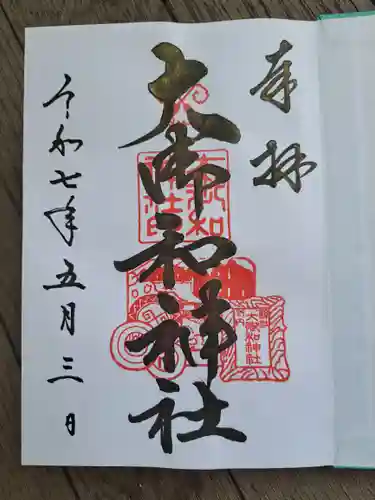 奉拝
大御和神社
令和七年五月三日
大御和神社